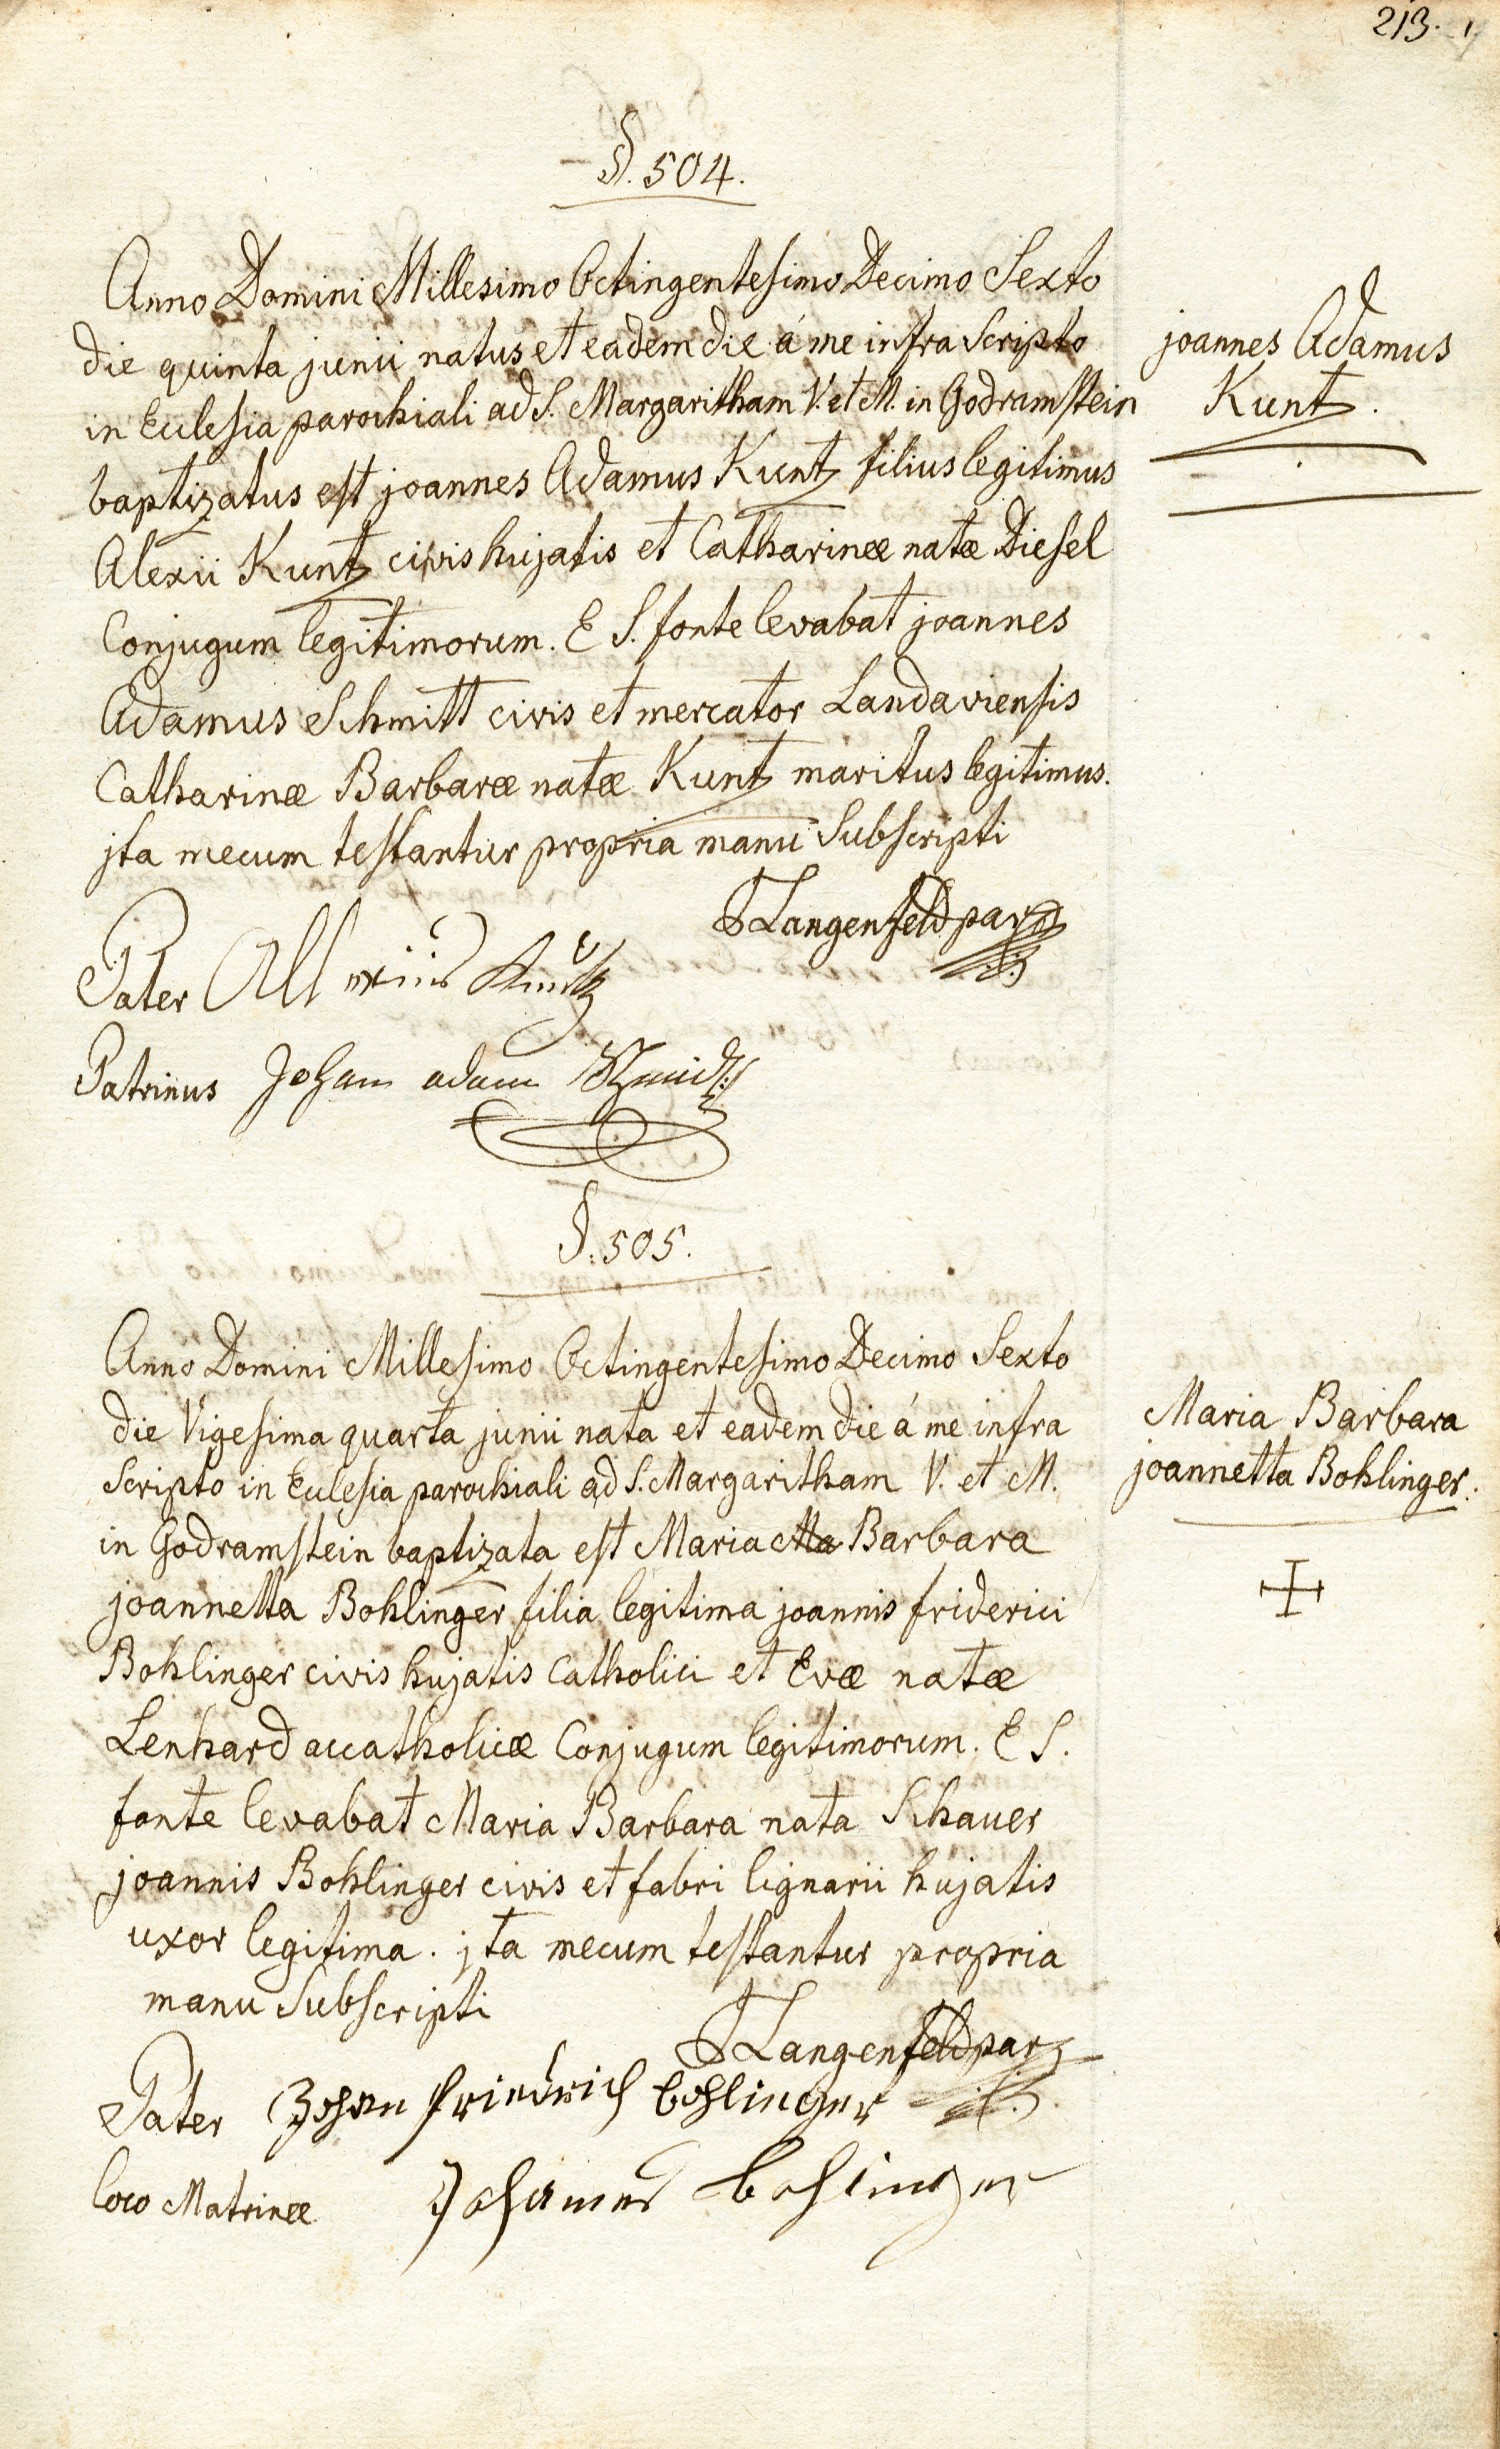 213.
§. 504.
Anno Domini Millesimo Octingentesimo Decimo Sexto
die quinta junii natus et eadem die á me infra Scripto
in Ecclesia parochiali ad S. Margaritham V. et M. in Godramstein
baptizatus est joannes Adamus Kuntz filius legitimus
Alexii Kuntz civis hujatis et Catharinæ natæ Diesel
Conjugum legitimorum. E S. fonte levabat joannes
Adamus Schmitt civis et mercator Landaviensis
Catharinæ Barbaræ natæ Kuntz maritus legitimus.
jta mecum testantur propria manu Subscripti
joannes Adamus
Kuntz.
Langenfeld par
Pater Allexius Kuntz
Patrinus Johan adam Schmidt
§. 505.
Anno Domini Millesimo Octingentesimo Decimo Sexto
die Vigesima quarta junii nata et eadem die á me infra
Scripto in Ecclesia parochiali ad S. Margaritham V. et M.
in Godramstein baptizata est Maria Ma Barbara
joannetta Bohlinger filia legitima joannis friderici
Bohlinger civis hujatis Catholici et Evæ natæ
Lenhard accatholicæ Conjugum legitimorum. E S.
fonte levabat Maria Barbara nata Schauer
joannis Bohlinger civis et fabri lignarii hujatis
uxor legitima. jta mecum testantur propria
manu Subscripti
Maria Barbara
joannetta Bohlinger.
Langenfeld par
Pater Johan friedrich bohlinger
loco Matrinæ Johannes bohlinger